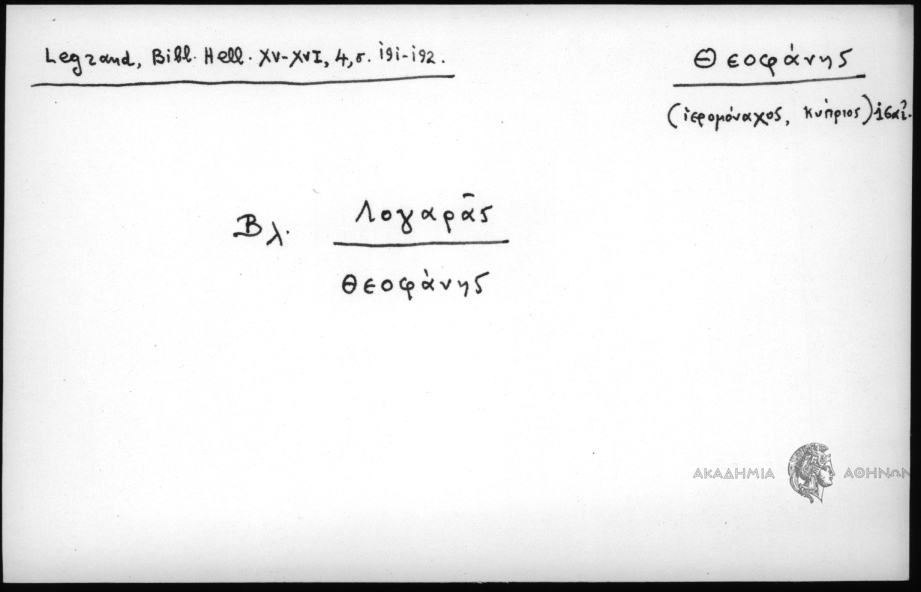 Legrand, Bibl. Hell. XV-XVI, 4, σ. 191-192.
Θεοφάνης
(ἱερομόναχος, κύπριος) 16 αἰ.
Βλ. Λογαρᾶς
Θεοφάνης
ΑΚΑΔΗΜΙΑ ΑΘΗΝΩΝ